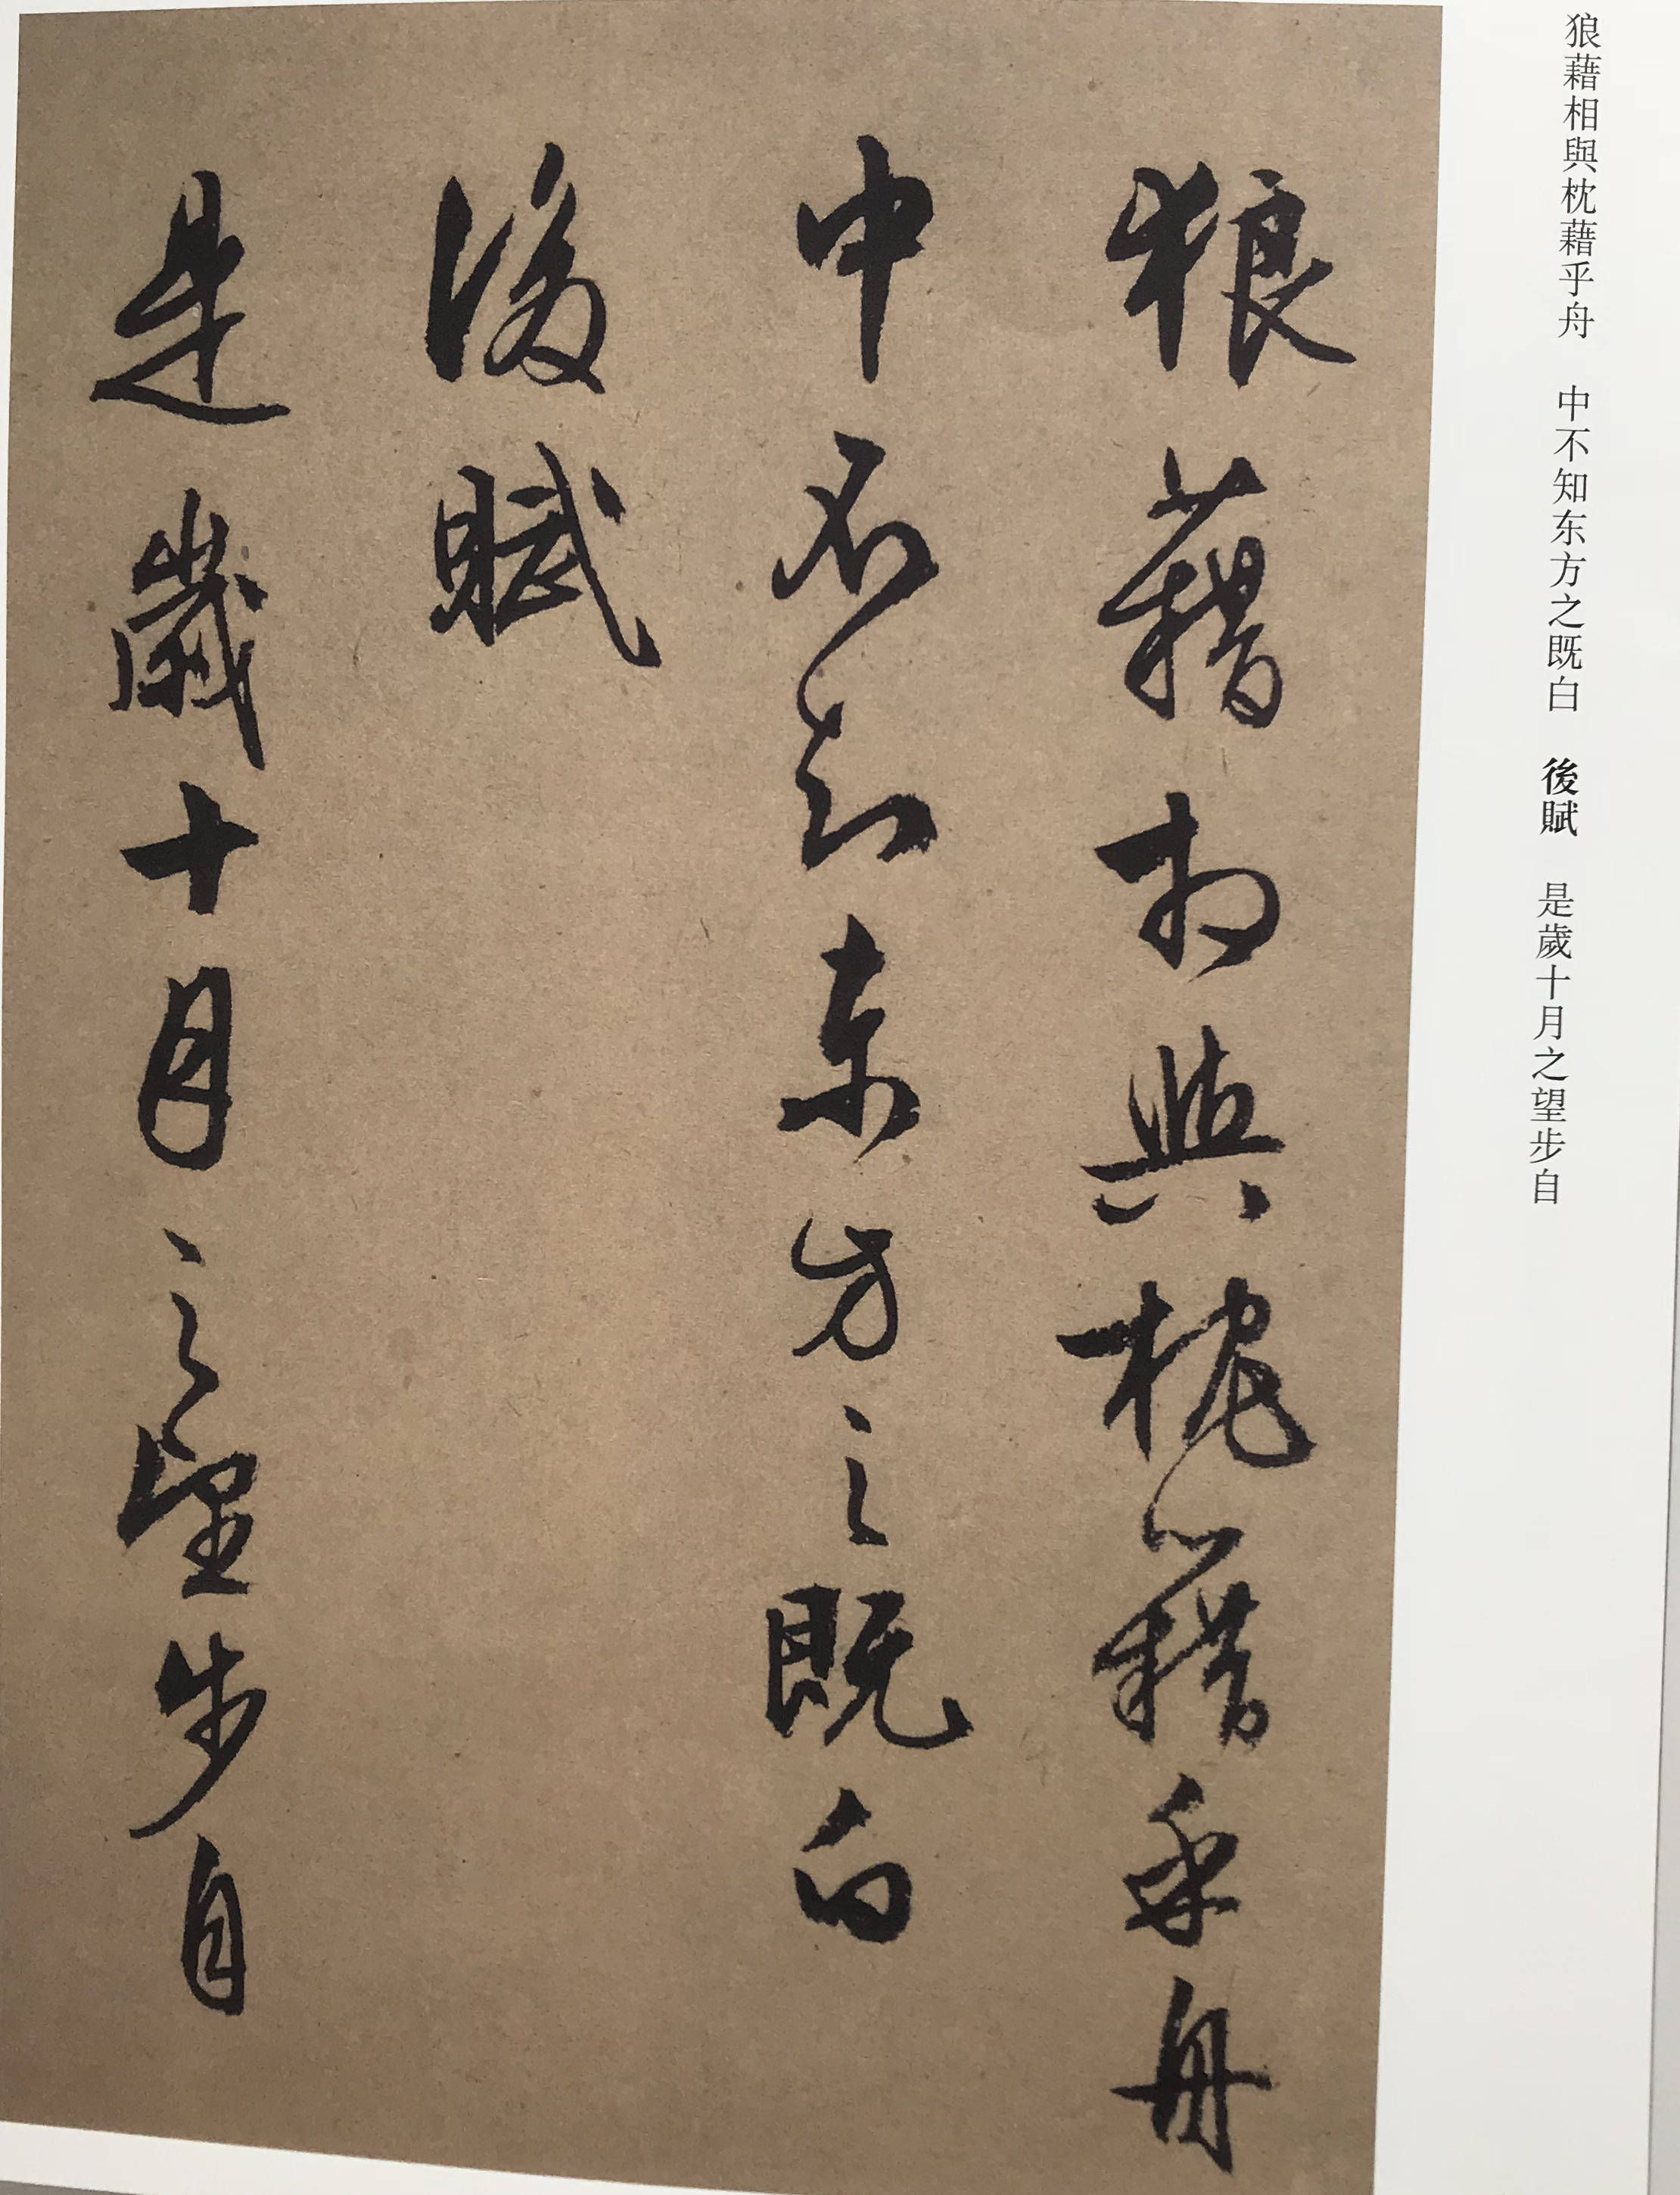 狼藉相與枕藉乎舟　中不知东方之既白　後賦　是歲十月之望步自
狼藉相與枕藉乎舟
中不知东方之既白
後賦
是歲十月之望步自